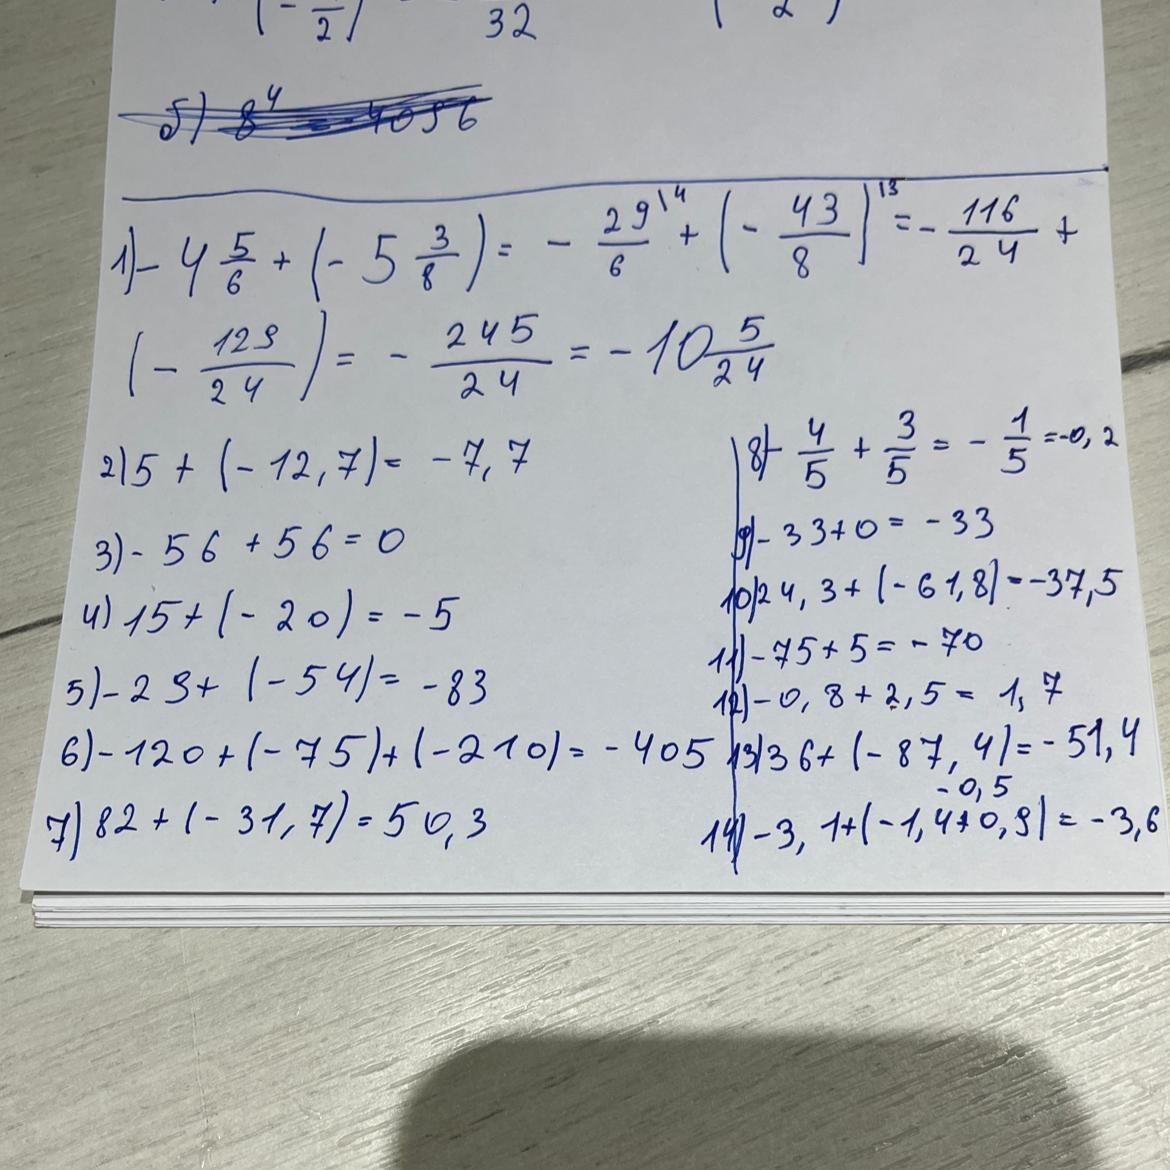 (-  /2)  32  (  2)
б) 8^4 = 4096
1) - 4 5/6 + (- 5 3/8) = - 29/6 \4 + (- 43/8) \3 = - 116/24 +
(- 129/24) = - 245/24 = - 10 5/24
2) 5 + (- 12,7) = - 7,7
3) - 56 + 56 = 0
4) 15 + (- 20) = - 5
5) - 29 + (- 54) = - 83
6) - 120 + (- 75) + (- 210) = - 405
7) 82 + (- 31,7) = 50,3
8) - 4/5 + 3/5 = - 1/5 = -0,2
9) - 33 + 0 = - 33
10) 24,3 + (- 61,8) = - 37,5
11) - 75 + 5 = - 70
12) - 0,8 + 2,5 = 1,7
13) 36 + (- 87,4) = - 51,4
- 0,5
14) - 3,1 + (- 1,4 + 0,9) = - 3,6